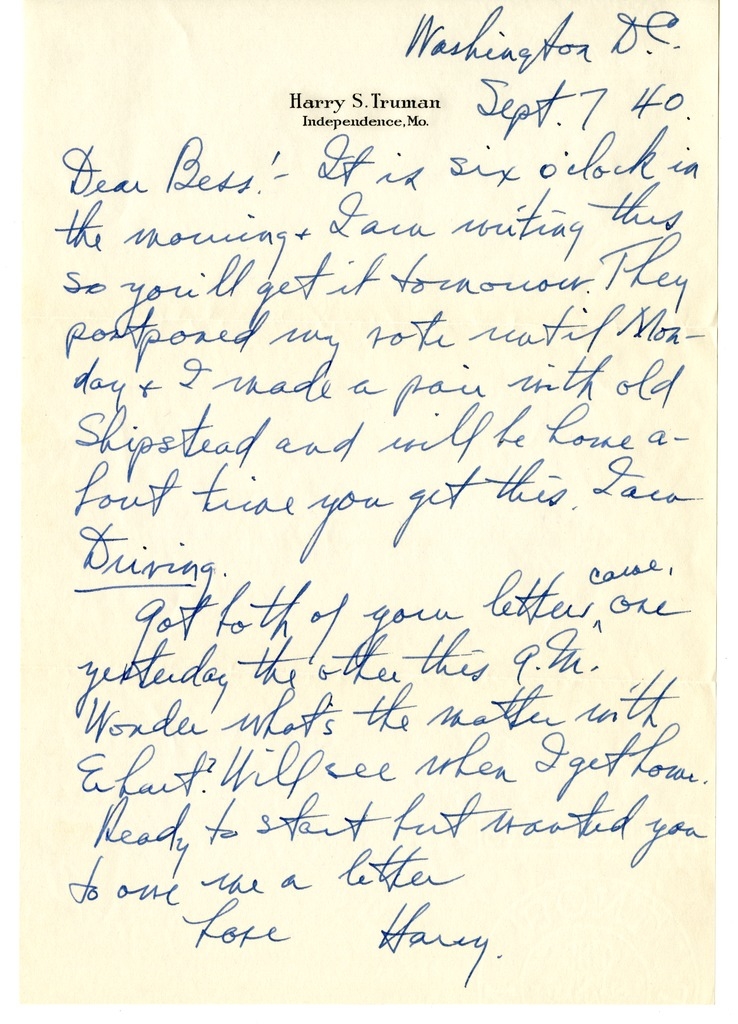 Washington D.C.
Harry S. Truman
Independence, Mo.
Sept. 7 40.
Dear Bess:- It is six o'clock in
the morning & I am writing this
so you'll get it tomorrow. They
postponed my vote until Mon-
day & I made a pair with old
Shipstead and will be home a-
bout time you get this. I am
Driving.
Got both of your letters, came, one
yesterday the other this A.M.
Wonder what's the matter with
Ehart? Will see when I get home.
Ready to start but wanted you
to owe me a letter
Love Harry.